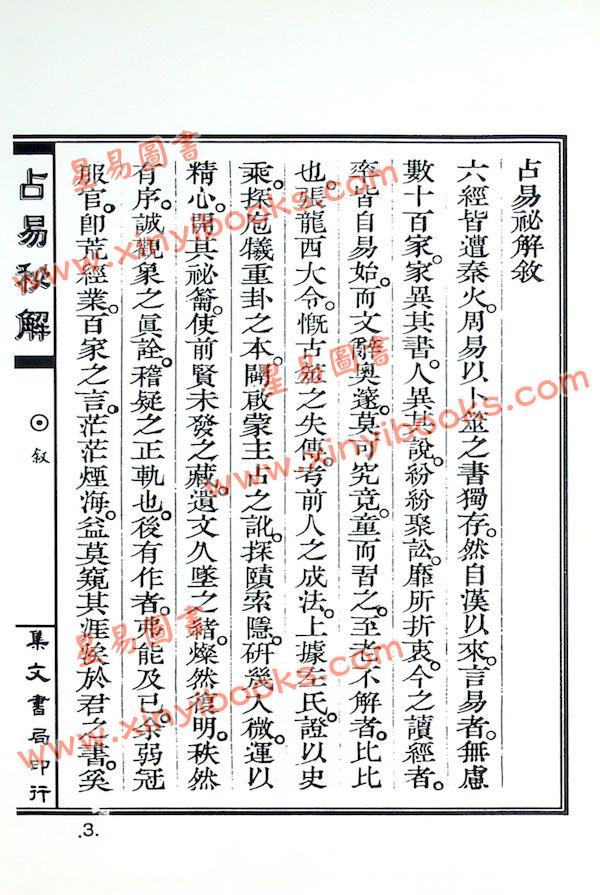 占易祕解敘
六經皆遭秦火。周易以卜筮之書獨存。然自漢以來。言易者。無慮
數十百家。家異其書。人異其說。紛紛聚訟。靡所折衷。今之讀經者。
率皆自易始。而文辭奧邃。莫可究竟。童而習之。至老不解者。比比
也。張龍西大令。慨古筮之失傳。考前人之成法。上據左氏。證以史
乘。探庖犧重卦之本。闢啟蒙主占之訛。探賾索隱。研幾入微。運以
精心。開其祕籥。使前賢未發之藏。遺文久墜之緒。燦然復明。秩然
有序。誠觀象之眞詮。稽疑之正軌也。後有作者。弗能及已。余弱冠
服官。卽荒經業。百家之言。茫茫煙海。益莫窺其涯涘於君之書。奚
占易秘解
敘
集文書局印行
.3.
星易圖書
www.xinyibooks.com
星易圖書
www.xinyibooks.com
星易圖書
www.xinyibooks.com